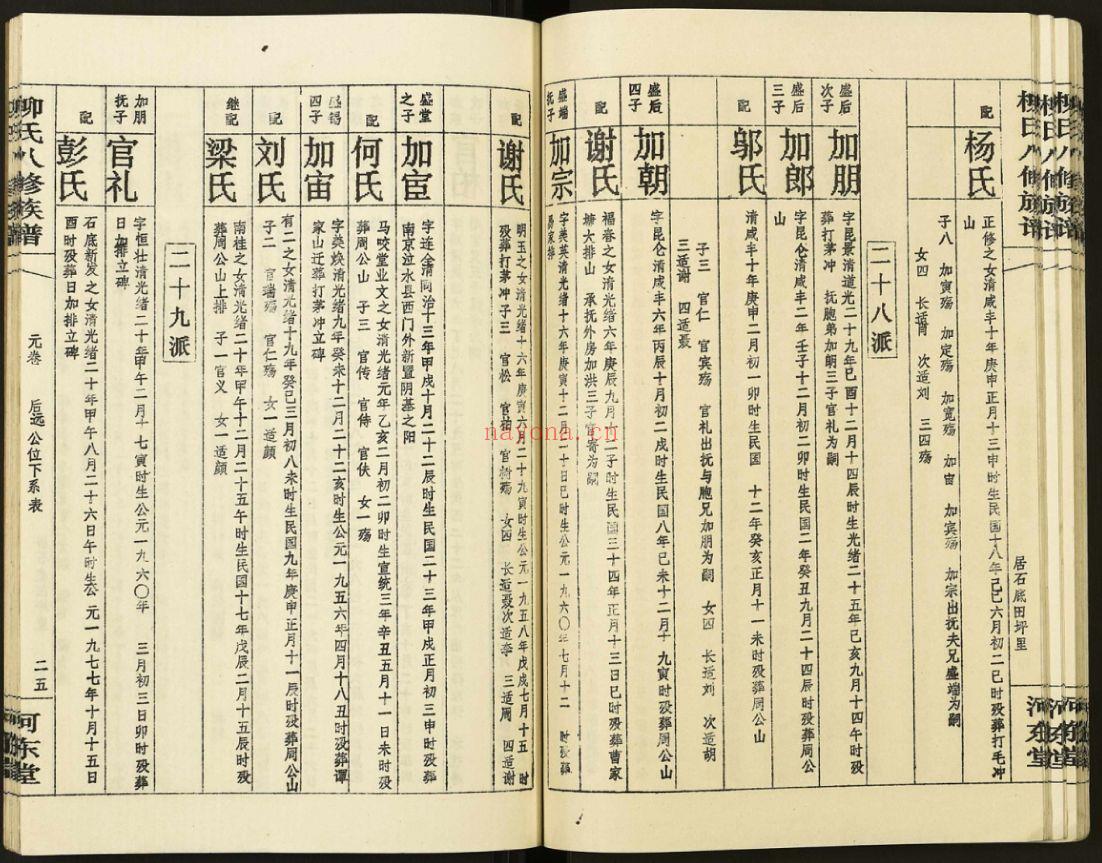 柳氏八修族谱
河东堂
居石底田坪里
配
杨氏
正修之女清咸丰十年庚申正月十三申时生民国十八年己巳六月初二巳时殁葬打毛冲
山
子八 加寅殇 加定殇 加宽殇 加宙 加宾殇 加宗出抚夫兄盛端为嗣
女四 长适萧 次适刘 三四殇
二十八派
盛后
次子
加朋
字昆景清道光二十九年己酉十二月十四辰时生光绪二十五年己亥九月十四午时殁
葬打茅冲 抚胞弟加朝三子官礼为嗣
盛后
三子
加郎
字昆仑清咸丰二年壬子十二月初二卯时生民国二年癸丑九月二十四辰时殁葬周公
山
配
邬氏
清咸丰十年庚申二月初一卯时生民国 十二年癸亥正月十一未时殁葬周公山
子三 官仁 官宾殇 官礼出抚与胞兄加朋为嗣 女四 长适刘 次适胡
三适谢 四适聂
盛后
四子
加朝
字昆仑清咸丰六年丙辰十月初二戌时生民国八年己未十二月十 九寅时殁葬周公山
配
谢氏
福春之女清光绪六年庚辰九月十二子时生民国三十四年正月十三日巳时殁葬曹家
塘大排山 承抚外房加洪三子官寄为嗣
盛端
抚子
加宗
字美英清光绪十六年庚寅十二月二十日巳时生公元一九六〇年七月十二 时殁葬
易家排
配
谢氏
明玉之女清光绪十六年庚寅六月二十九寅时生公元一九五八年戊戌七月十五 时
殁葬打茅冲子三 官松 官柏 官树殇 女四 长适聂次适李 三适周 四适谢
盛堂
之子
加宦
字连金清同治十三年甲戌十月二十二辰时生民国二十三年甲戌正月初三申时殁葬
南京泣水县西门外新置阴基之阳
配
何氏
马咬堂业文之女清光绪元年乙亥二月初二卯时生宣统三年辛丑五月十一日未时殁
葬周公山 子三 官传 官侍 官伕 女一殇
盛锡
四子
加宙
字奠焕清光绪九年癸未十二月二十二亥时生公元一九五六年四月十八丑时殁葬谭
家山迁葬打茅冲立碑
配
刘氏
有二之女清光绪十九年癸巳三月初八未时生民国九年庚申正月十一辰时殁葬周公山
子二 官瑞殇 官仁殇 女一适颜
继配
梁氏
南桂之女清光绪二十年甲午十二月二十五午时生民国十七年戊辰二月十五辰时殁
葬周公山上排 子一官义 女一适颜
二十九派
加朋
抚子
官礼
字恒壮清光绪二十年甲午二月十七寅时生公元一九六〇年 三月初三日卯时殁葬
日加排立碑
配
彭氏
石底新发之女清光绪二十年甲午八月二十六日午时生公元一九七七年十月十五日
酉时殁葬日加排立碑
柳氏八修族谱
元卷
后远公位下系表
二五
河东堂
nayona.cn